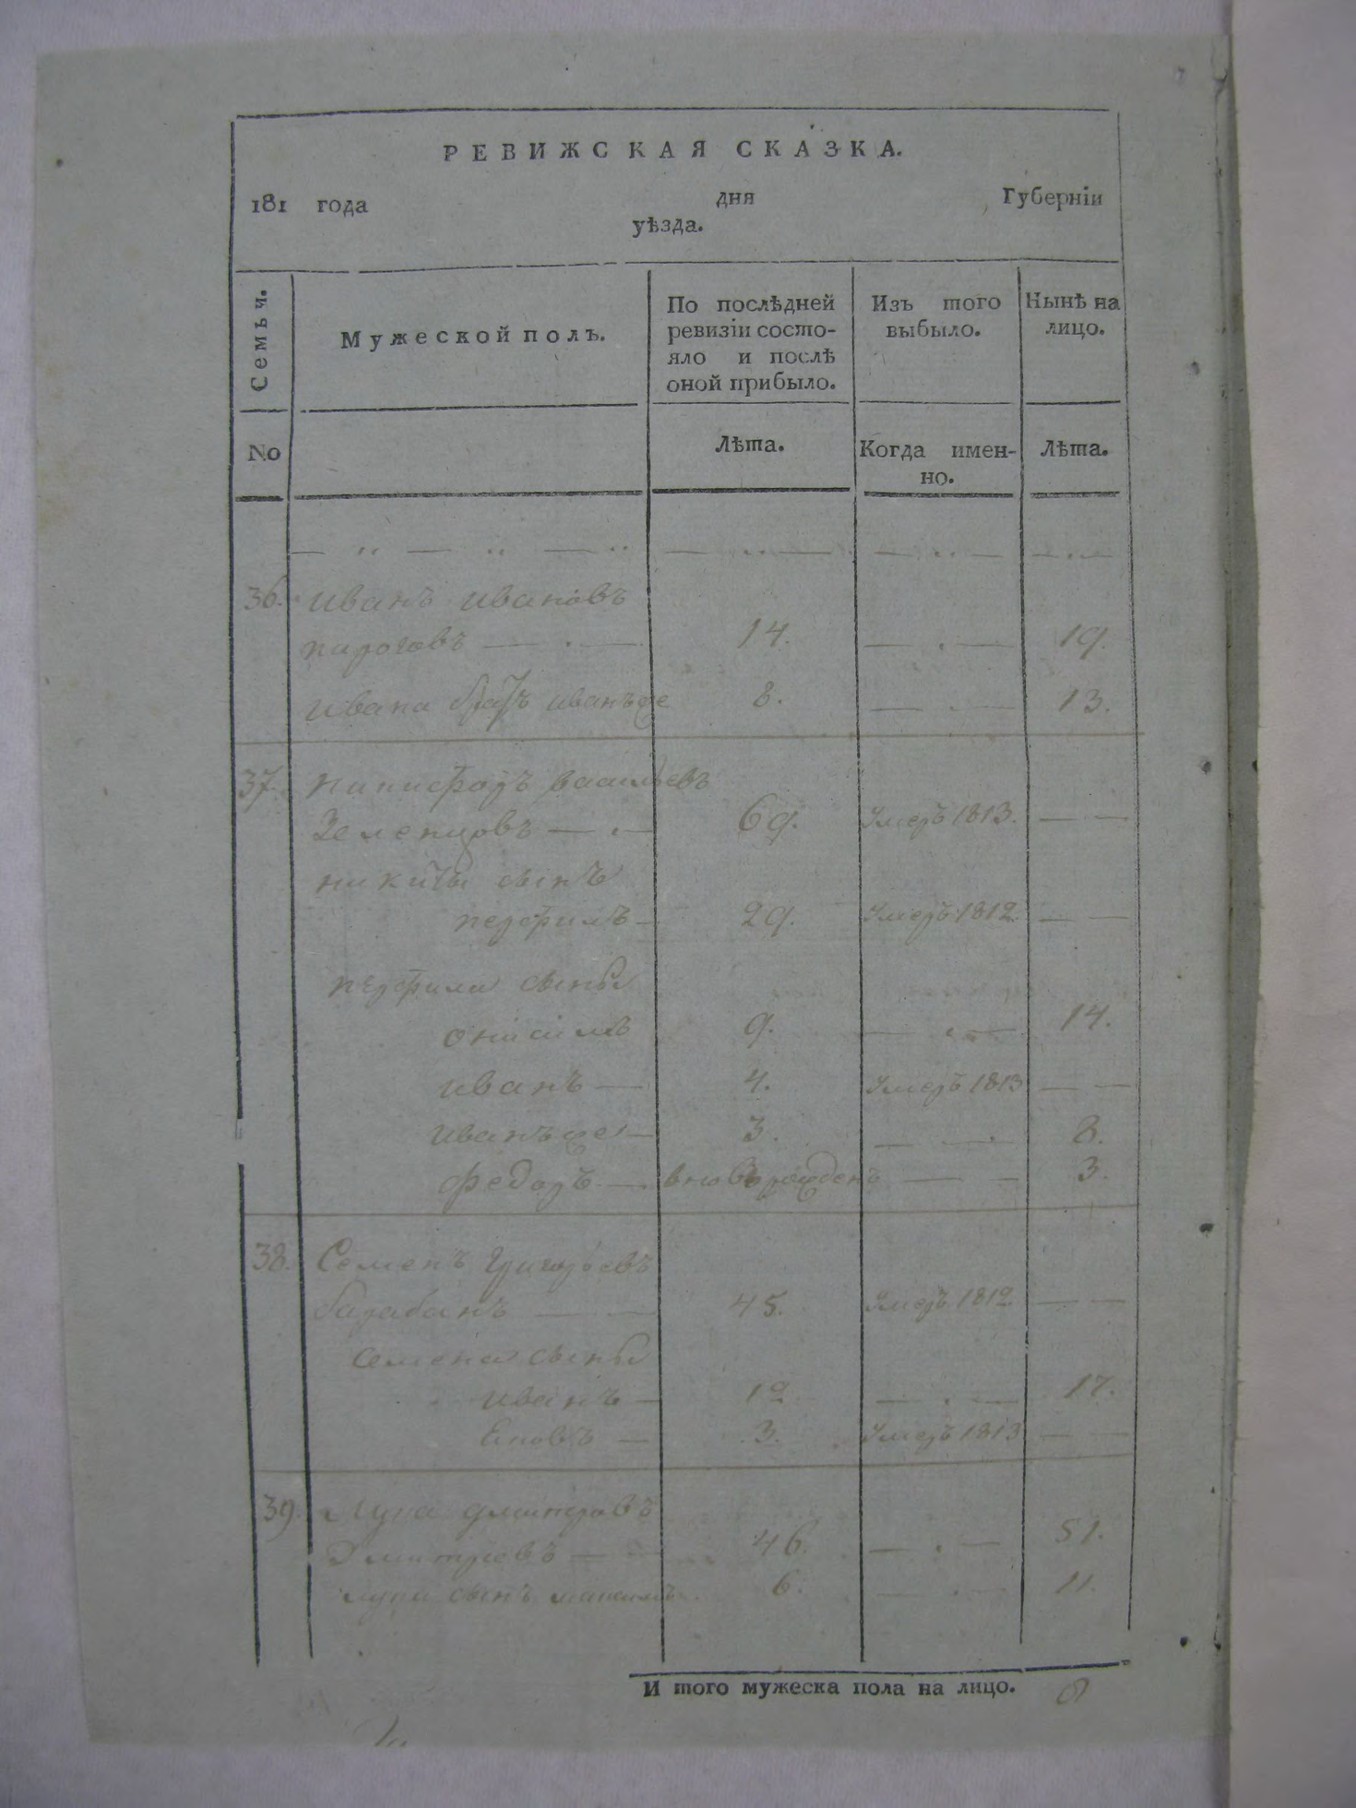 РЕВИЖСКАЯ СКАЗКА.
181 года дня Губерніи
уѣзда.
Семьи.
Мужеской полъ.
По послѣдней ревизіи состо-яло и послѣ оной прибыло.
Изъ того выбыло.
Нынѣ на лицо.
No
Лѣта.
Когда имен-но.
Лѣта.
36. Иванъ Ивановъ
пироговъ — . — 14. — . — 19.
Ивана братъ иванъже 8. — . — 13.
37. васильевъ
Зеленцовъ — . — 69. Умеръ 1813. — —
никиты сынъ
перфилъ — 29. Умеръ 1812. — —
перфила сыны
онисимъ 9. — . — 14.
иванъ — 4. Умеръ 1813 — —
иванъже — 3. — . — 8.
федоръ — вновърожденъ — — 3.
38. Семенъ Григорьевъ
барабанъ — — 45. Умеръ 1812. — —
семена сыны
иванъ — 12 — . — 17.
3. Умеръ 1813 — —
39. Лука дмитровъ
Дмитріевъ — — 46. — . — 51.
луки сынъ максимъ 6. — . — 11.
И того мужеска пола на лицо. 8